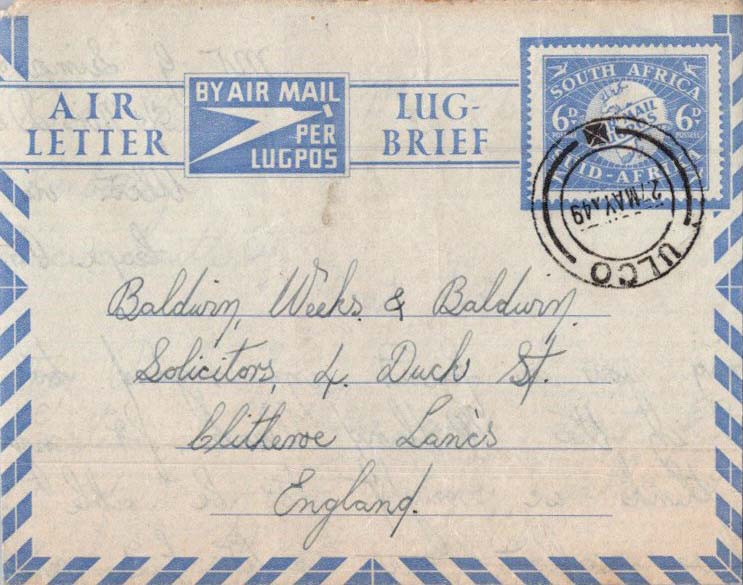 AIR LETTER
BY AIR MAIL
PER LUGPOS
LUG-BRIEF
SOUTH AFRICA
6D. 6D.
MAIL
POS
SUID-AFRIKA
27 MAY X 49
ULCO
Baldwin, Weeks & Baldwin.
Solicitors, 4. Duck St.
Clitheroe Lancs
England.